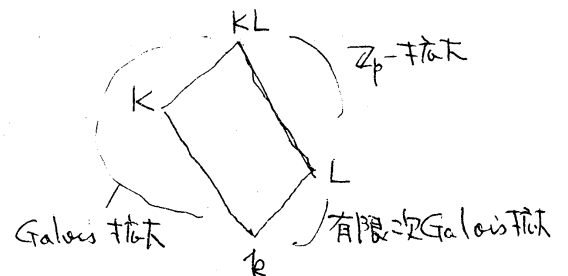 KL
ℤp-拡大
K
L
Galois拡大
有限次Galois拡大
k